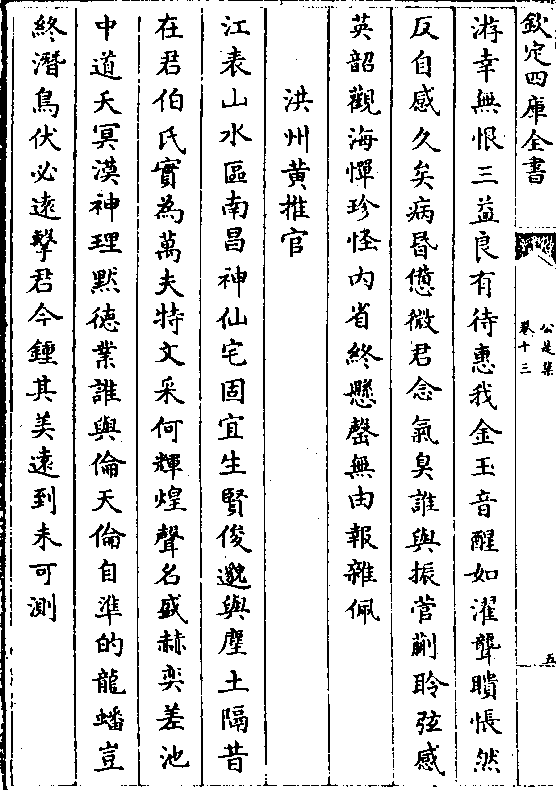 欽定四庫全書
公是集
卷十三
五
游幸無恨三益良有待惠我金玉音醒如濯聾瞶悵然
反自感久矣病昏憊微君念氣臭誰與振菅蒯聆弦感
英韶觀海憚珍怪内省終懸罄無由報雜佩
洪州黄推官
江表山水區南昌神仙宅固宜生賢俊邈與塵土隔昔
在君伯氏實為萬夫特文采何輝煌聲名盛赫奕差池
中道夭冥漠神理黙徳業誰與倫天倫自準的龍蟠豈
終潛鳥伏必逺擊君今鍾其美逺到未可測